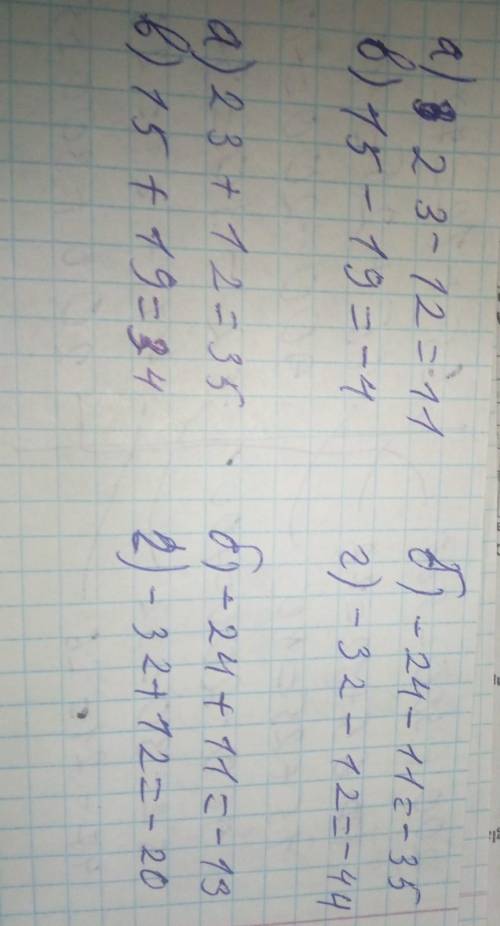 а) 23-12=11 б) -24-11=-35
в) 15-19=-4 г) -32-12=-44
а) 23+12=35 б) -24+11=-13
в) 15+19=34 г) -32+12=-20